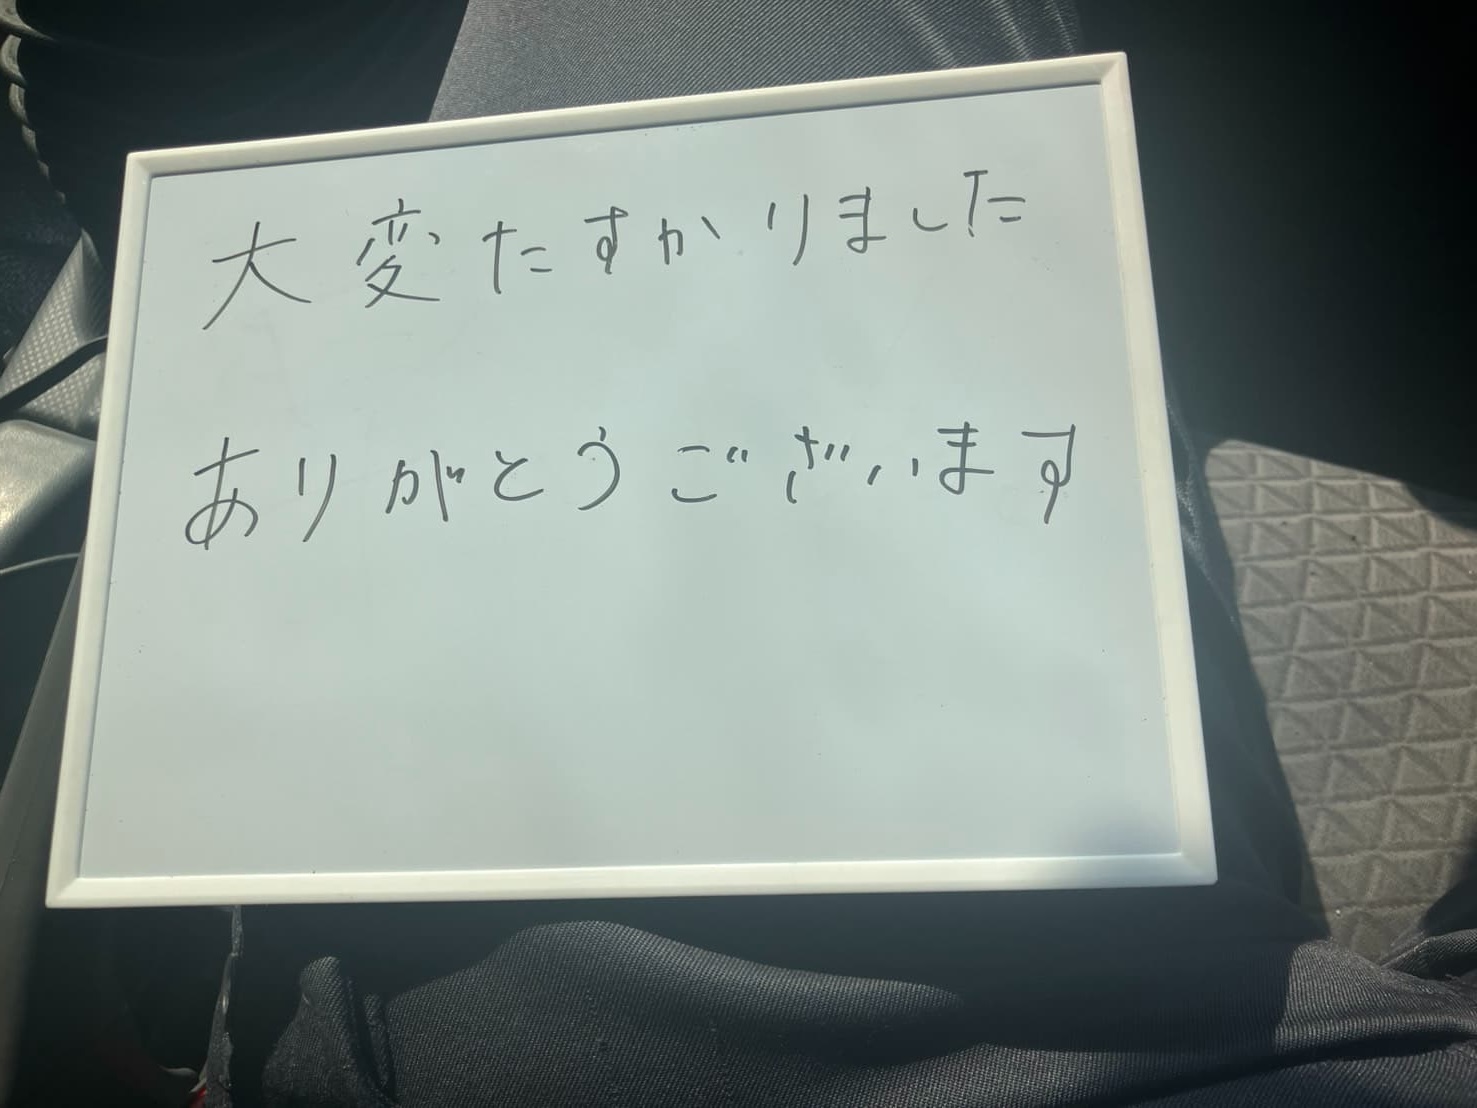 大変たすかりました
ありがとうございます